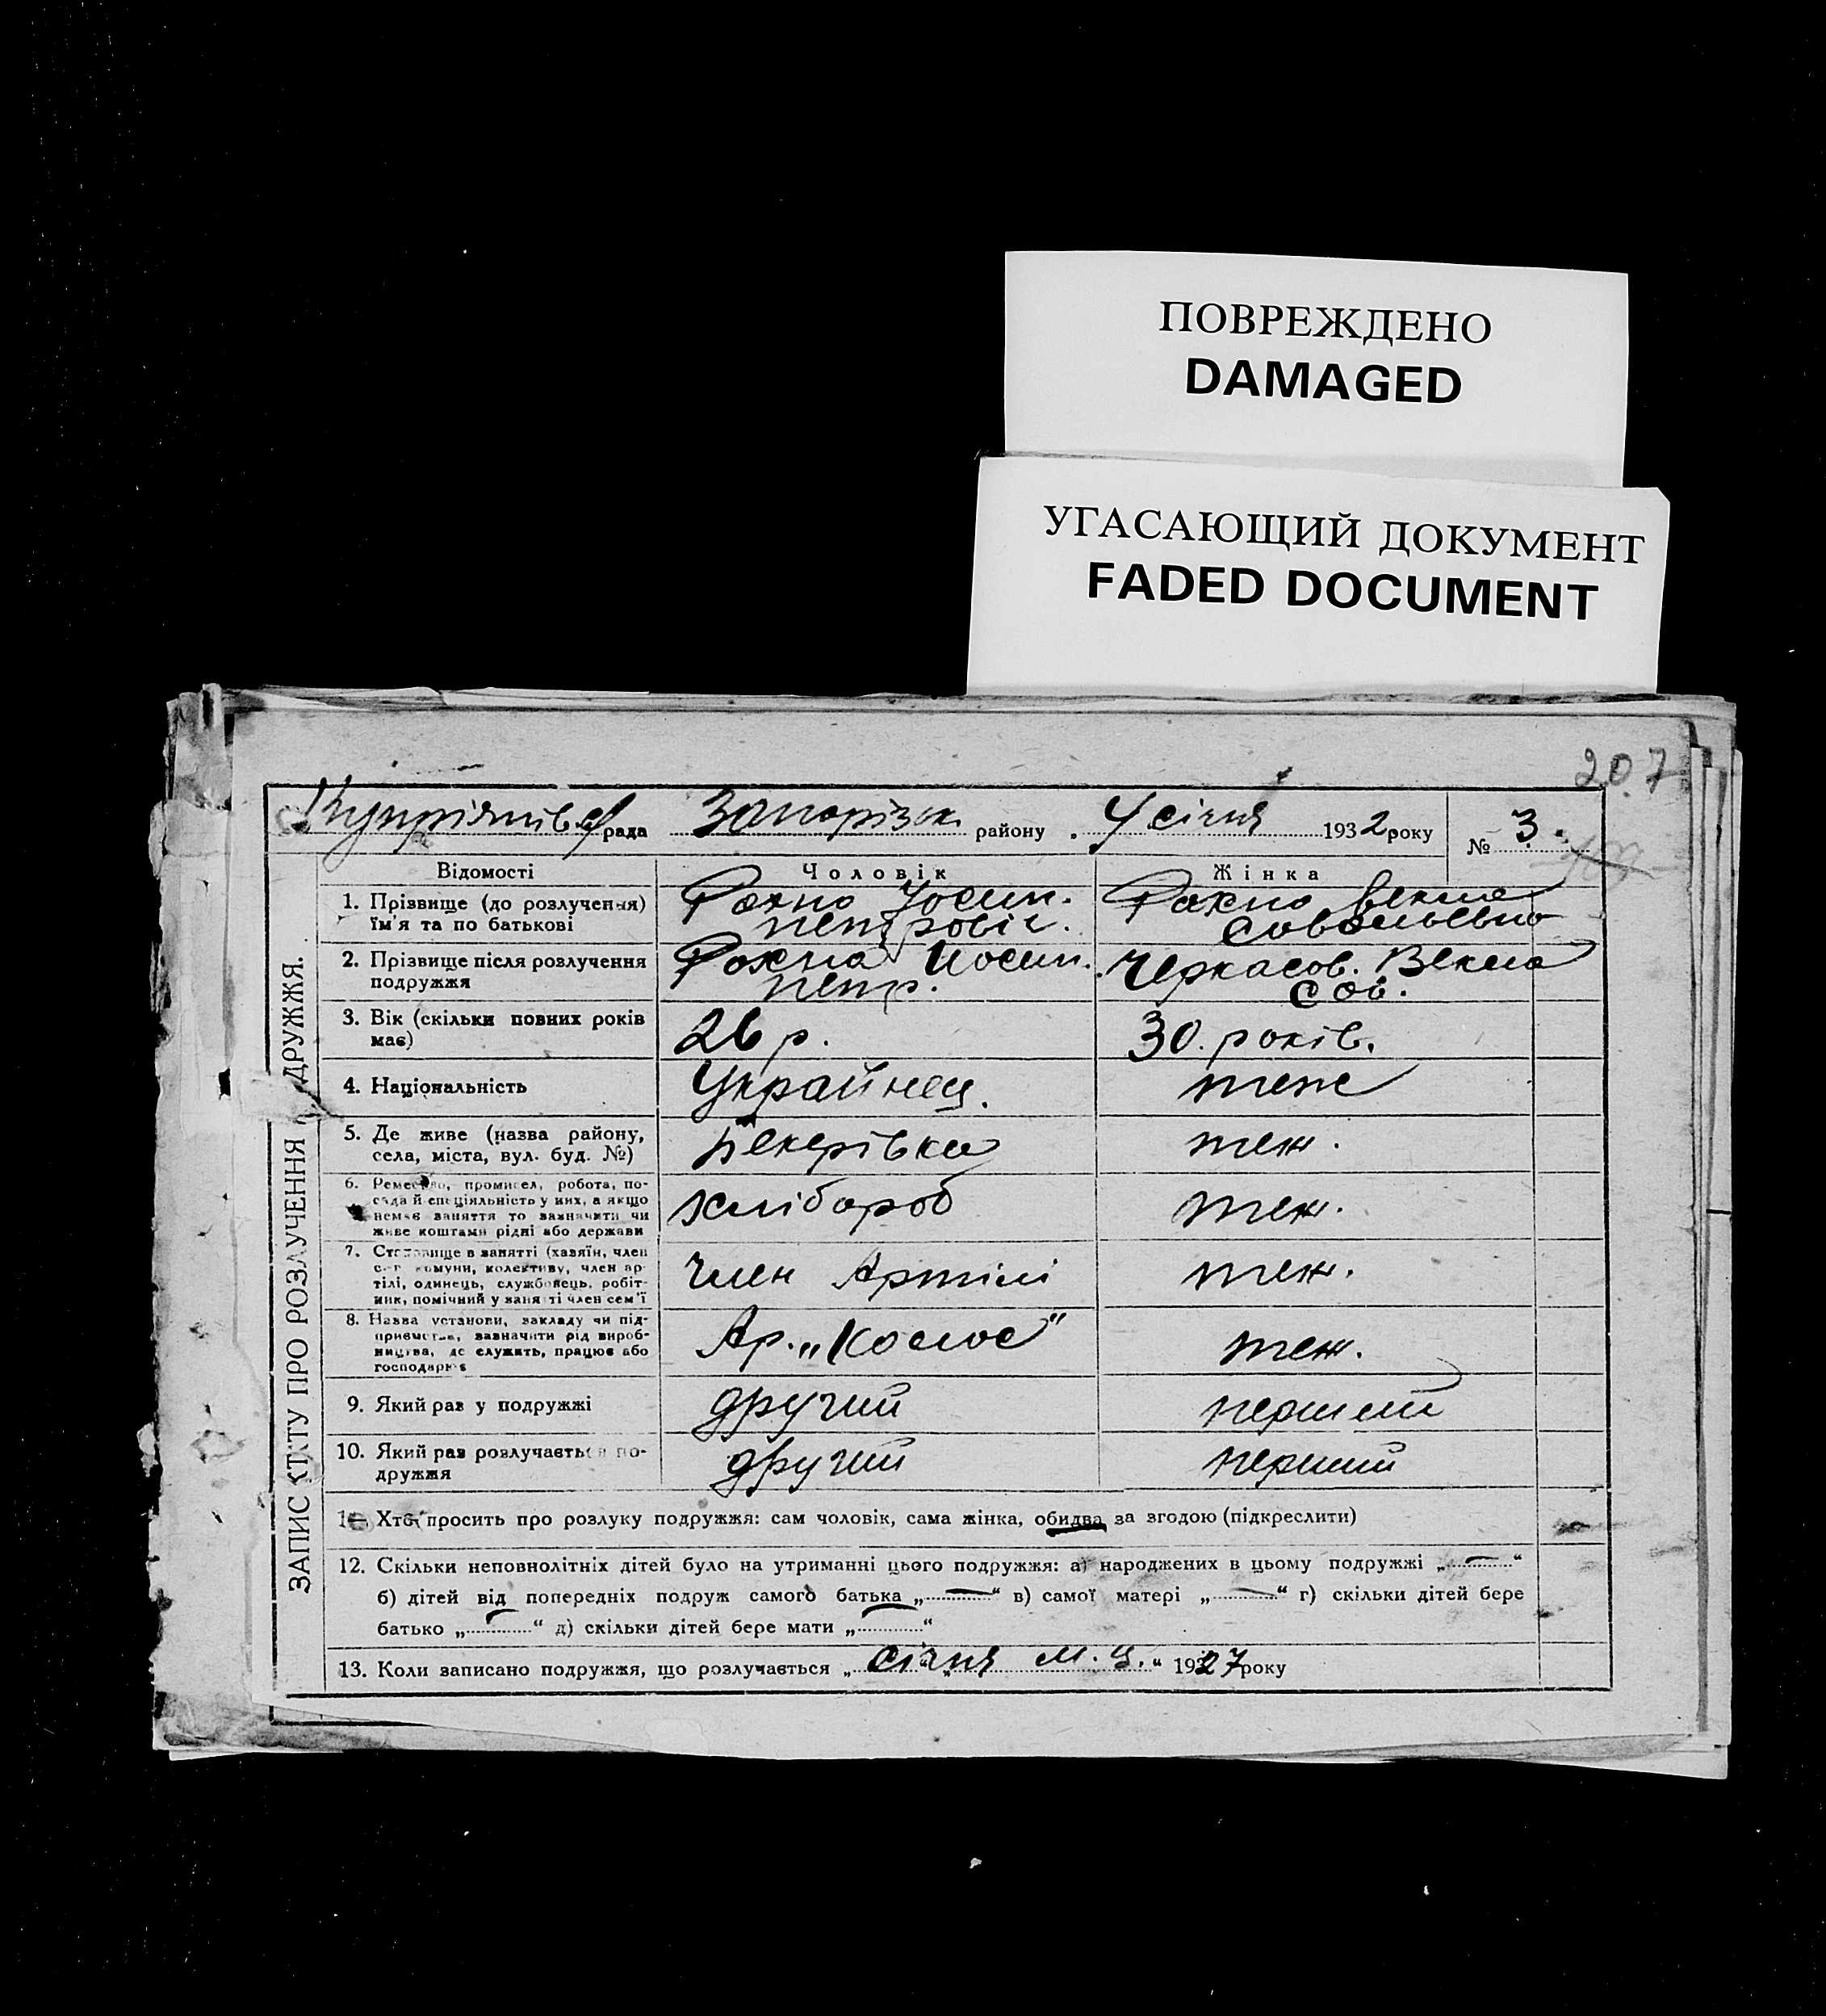 ПОВРЕЖДЕНО
DAMAGED
УГАСАЮЩИЙ ДОКУМЕНТ
FADED DOCUMENT
207
рада Запорізьк. району 4 січня 1932 року № 3.
ЗАПИС АКТУ ПРО РОЗЛУЧЕННЯ ПОДРУЖЖЯ.
Відомості Чоловік Жінка
1. Прізвище (до розлучення) їм'я та по батькові
Рахно Йосип. Петровіч.
Рахно Векла Савельевна
2. Прізвище після розлучення подружжя
Рохна Йосип. Петр.
Черкасов. Векла Сав.
3. Вік (скільки повних років має)
26 р.
30. років.
4. Національність
Украйнец.
теж
5. Де живе (назва району, села, міста, вул. буд. №)
теж.
6. Ремесло, промисел, робота, посада й спеціяльність у них, а якщо немає заняття то зазначити чи живе коштами рідні або держави
хлібороб
теж.
7. Становище в занятті (хазяїн, член с.-г. комуни, колективу, член артілі, одинець, службовець, робітник, помічний у занятті член сем'ї
член Артілі
теж.
8. Назва установи, закладу чи підприємства, зазначити рід виробництва, де служить, працює або господарює
Ар. „Колос"
теж.
9. Який раз у подружжі
другий
перший
10. Який раз розлучається подружжя
другий
перший
11. Хто просить про розлуку подружжя: сам чоловік, сама жінка, обидва за згодою (підкреслити)
12. Скільки неповнолітніх дітей було на утриманні цього подружжя: а) народжених в цьому подружжі „—“
б) дітей від попередніх подруж самого батька „—“ в) самої матері „—“ г) скільки дітей бере
батько „—“ д) скільки дітей бере мати „—“
13. Коли записано подружжя, що розлучається „ січня м.ц. “ 1927 року